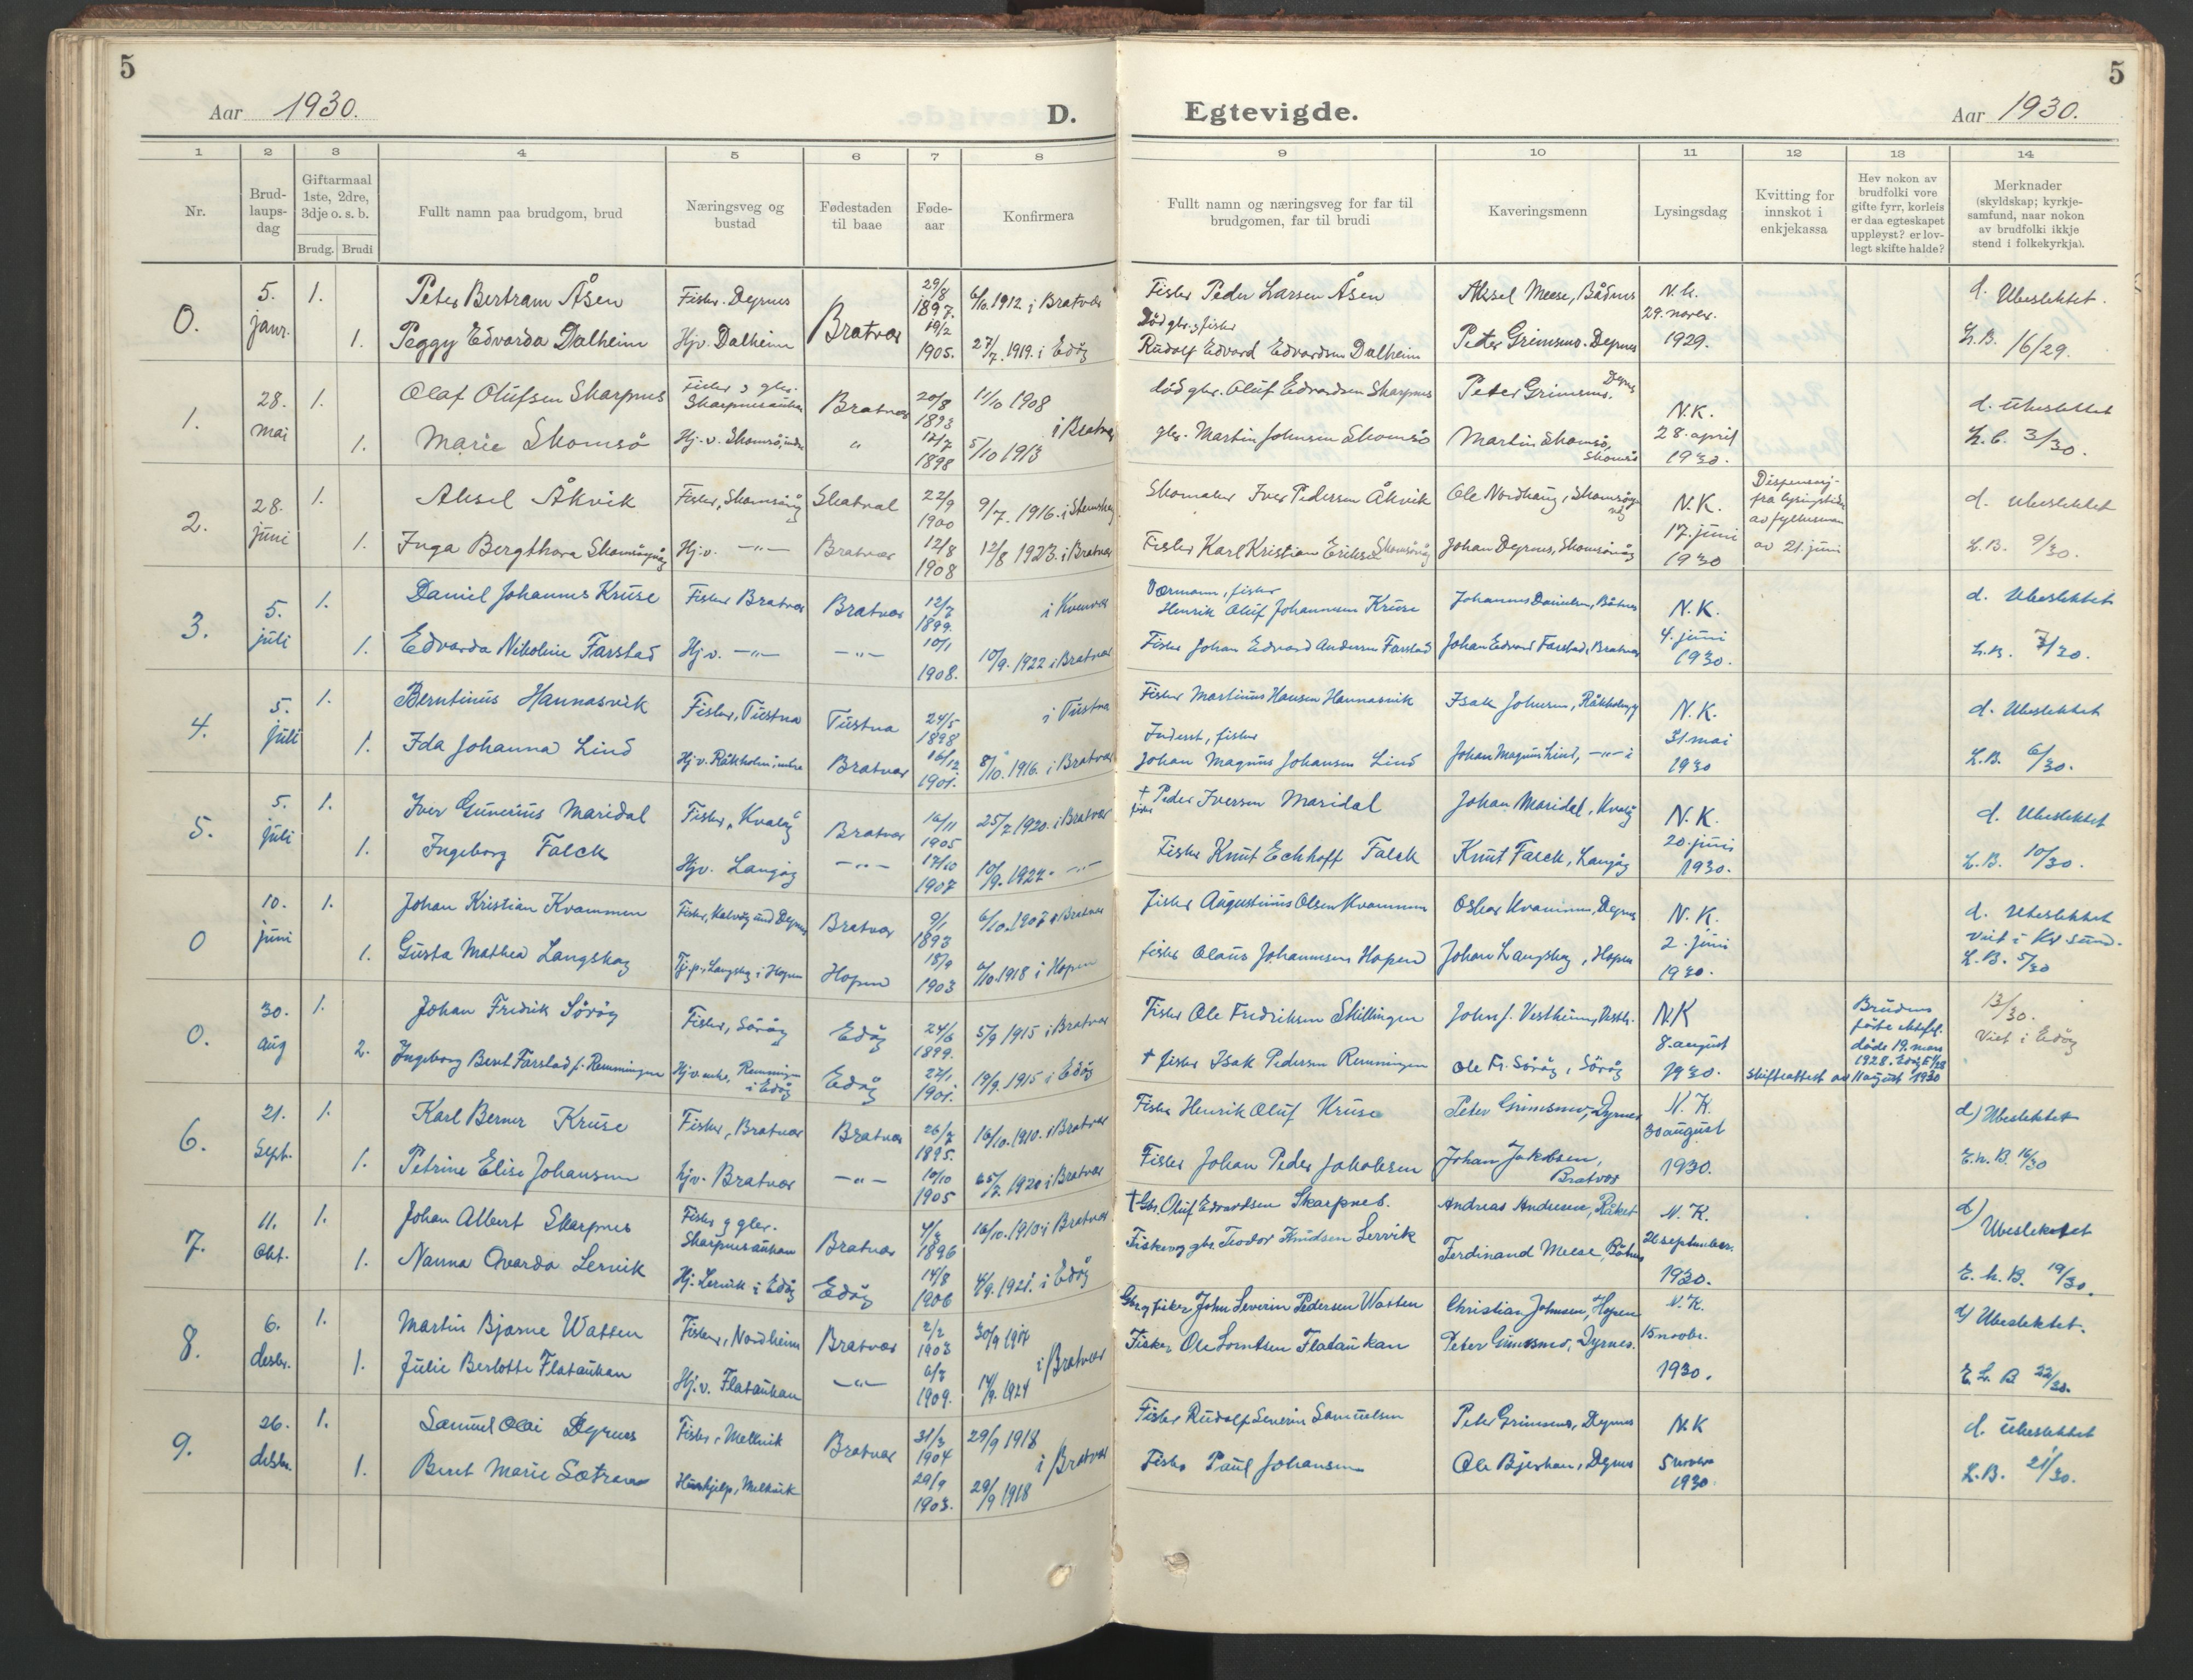 5
Aar 1930.
D.
Egtevigde.
Aar 1930.
5
1
2
3
4
5
6
7
8
9
10
11
12
13
14
Nr.
Brud-
laups-
dag
Giftarmaal
1ste, 2dre,
3dje o. s. b.
Brudg.
Brudi
Fullt namn paa brudgom, brud
Næringsveg og
bustad
Fødestaden
til baae
Føde-
aar
Konfirmera
Fullt namn og næringsveg for far til
brudgomen, far til brudi
Kaveringsmenn
Lysingsdag
Kvitting for
innskot i
enkjekassa
Hev nokon av
brudfolki vore
gifte fyrr, korleis
er daa egteskapet
uppløyst? er lov-
legt skifte halde?
Merknader
(skyldskap; kyrkje-
samfund, naar nokon
av brudfolki ikkje
stend i folkekyrkja).
0. 5. janr. 1. Peter Bertram Åsen Fisker. Dyrnes Bratvær 29/8 1897. 6/10.1912. i Bratvær Fisker Peder Larsen Åsen Aksel Meese, Båtnes N.K. 29. novbr. 1929. d. Ubeslektet.
1. Peggy Edvarda Dalheim Hjv. Dalheim 19/2 1905. 27/7.1919. i Edöy Död gbr. & fisker Rudolf Edvard Edvardsen Dalheim Peter Grimsmo. Dyrnes L.B. 16/29.
1. 28. mai 1. Olaf Olufsen Skarpnes Fisker & gbr. Skarpnesaukan Bratvær 20/8 1893 11/10 1908 i Bratvær död gbr. Oluf Edvardsen Skarpnes Peter Grimsmo, Dyrnes N.K. 28. april 1930. d. Ubeslektet
1. Marie Skomsö Hj.v. Skomsö, indre " 12/7 1898 5/10 1913 gbr. Martin Johnsen Skomsö Martin Skomsö, Skomsö L.B. 3/30.
2. 28. juni 1. Aksel Åkvik Fisker, Skomsöög Skatval 22/9 1900 9/7. 1916. i Stemshaug Skomaker Iver Pedersen Åkvik Ole Nordhaug, Skomsöyvåg N.K. 17. juni 1930 Dispensasj. fra lysingstiden av fylkesman av 21. juni d. Ubeslektet
1. Inga Bergthora Skomsöyvåg Hj.v. —"— Bratvær 12/8 1908 12/8 1923. i Bratvær Fisker Karl Kristian Eriksen Skomsövåg Johan Dyrnes, Skomsövåg L.B. 9/30.
3. 5. juli 1. Daniel Johannes Kruse Fisker Bratvær Bratvær 12/7 1899. i Kvenvær Værmann, fisker Henrik Oluf Johannesen Kruse Johannes Danielsen, Båtnes N.K. 4. juni 1930. d. Ubeslektet
1. Edvarda Nikoline Farstad Hj.v. —"— —"— 10/1 1908. 10/9. 1922 i Bratvær Fisker Johan Edvard Andersen Farstad Johan Edvard Farstad, Bratvær L.B. 7/30.
4. 5. juli 1. Berntinus Hannasvik Fisker, Tustna Tustna 24/5 1898 i Tustna Fisker Martinus Hansen Hannasvik Isak Johnsen, Råkholmen N.K. 31. mai 1930 d. Ubeslektet
1. Ida Johanna Lind Hj.v. Råkholm, indre Bratvær 16/12 1901. 8/10. 1916. i Bratvær Inderst, fisker Johan Magnus Johansen Lind Johan Magnus Lind, —"— L.B. 6/30.
5. 5. juli 1. Iver Gunerius Maridal Fisker, Kvalöy Bratvær 16/11 1905 25/7.1920. i Bratvær † fisker Peder Iversen Maridal Johan Maridal, Kvalöy N.K. 20. juni 1930. d. Ubeslektet
1. Ingeborg Falck Hjv. Langöy —"— 17/10 1907 10/9.1922. —"— Fisker Knut Eckhoff Falck Knut Falck, Langöy L.B. 10/30.
0 10. juni 1. Johan Kristian Kvammen Fisker, Kalvöy und Dyrnes Bratvær 9/1 1893 6/10.1907 i Bratvær Fisker Augustinus Olsen Kvammen Oskar Kvammen, Dyrnes N.K. 2. juni 1930. d. Ubeslektet Viet i Kr.sund.
1. Gusta Mathea Langskog Tj.p., Langskog i Hopen Hopen 18/9 1903 6/10.1918 i Hopen fisker Olaus Johannessen Hopen Johan Langskog, Hopen L.B. 5/30
0. 30. aug 1. Johan Fredrik Söröy Fisker, Söröy Edöy 24/6 1899. 5/9 1915 i Bratvær Fisker Ole Fredriksen Skillingen John J. Vestheim, NK 8. august 1930. Brudens förste ektefel. döde 19. mars 1928. 13/30. Viet i Edöy
2. Ingeborg Beret Farstad f. Remmingen Hj.v. enke, Remmingen i Edöy Edöy 22/1 1901. 19/9. 1915 i Edöy † fisker Isak Pedersen Remmingen Ole Fr. Söröy, Söröy Skifteattest av 11 august 1930
6. 21. Sept. 1. Karl Berner Kruse Fisker, Bratvær Bratvær 26/7 1895. 16/10.1910. i Bratvær Fisker Henrik Oluf Kruse Peter Grimsmo, Dyrnes N.K. 30 august 1930. d) Ubeslektet
1. Petrine Elise Johansen hjv. Bratvær —"— 10/10 1905 25/7. 1920 i Bratvær Fisker Johan Peder Jakobsen Johan Jakobsen, Bratvær E.h.B. 16/30
7. 11. Okt. 1. Johan Albert Skarpnes Fisker & gbr. Skarpnesaukan Bratvær 4/3 1896 16/10.1910 i Bratvær † Gbr. Oluf Edvardsen Skarpnes. Andreas Andresen, Råket N.K. 26 september. 1930. d) Ubeslektet
1. Nanna Ovarda Lervik Hj. Lervik i Edöy Edöy 14/8 1906 4/9.1921. i Edöy Fisker og gbr. Teodor Knudsen Lervik Ferdinand Meese, Båtnes E.h.B. 19/30.
8. 6. desbr. 1. Martin Bjarne Watten Fisker, Nordheim Bratvær 2/2 1903 30/9 1917 i Bratvær Gbr. og fisker John Severin Pedersen Watten Christian Johnsen, Hopen N.K. 15 novbr. 1930. d) Ubeslektet.
1. Julie Berlotte Flataukan Hj.v. Flataukan —"— 6/7 1909. 14/9. 1924 Fisker Ole Lorntsen Flataukan Peter Grimsmo, Dyrnes. E.L.B 22/30.
9. 26. desbr. 1. Samuel Olai Dyrnes Fisker, Melkvik Bratvær 31/3 1904 29/9 1918 i Bratvær Fisker Rudolf Severin Samuelsen Peter Grimsmo, Dyrnes N.K 5 novbr 1930. d. Ubeslektet
1. Beret Marie Sætran Hushjelp, Melkvik 29/9 1903. 29/9 1918 Fisker Paul Johansen Ole Bjerkan, Dyrnes L.B. 21/30.